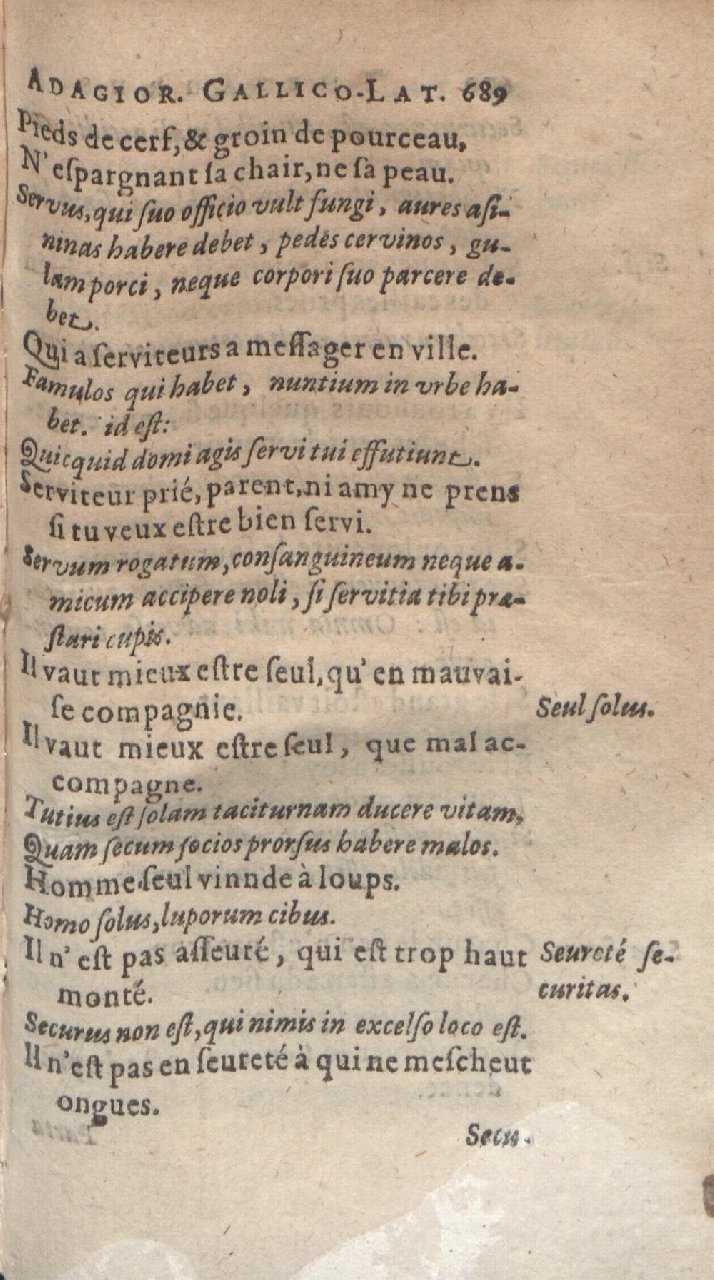 ADAGIOR. GALLICO-LAT. 689
Pieds de cerf, & groin de pourceau,
N'espargnant sa chair, ne sa peau.
Servus, qui suo officio vult fungi, aures asi-
ninas habere debet, pedes cervinos, gu-
lam porci, neque corpori suo parcere de-
bet.
Qui a serviteurs a messager en ville.
Famulos qui habet, nuntium in vrbe ha-
bet. id est:
Quicquid domi agis servi tui effutiunt.
Serviteur prié, parent, ni amy ne prens
si tu veux estre bien servi.
Servum rogatum, consanguineum neque a-
micum accipere noli, si servitia tibi præ-
stari cupis.
Il vaut mieux estre seul, qu'en mauvai-
se compagnie.
Seul solus.
Il vaut mieux estre seul, que mal ac-
compagne.
Tutius est solam taciturnam ducere vitam,
Quam secum socios prorsus habere malos.
Homme seul vinnde à loups.
Homo solus, luporum cibus.
Il n'est pas asseuré, qui est trop haut
monté.
Seureté se-
curitas.
Securus non est, qui nimis in excelso loco est.
Il n'est pas en seureté à qui ne mescheut
ongues.
Secu-